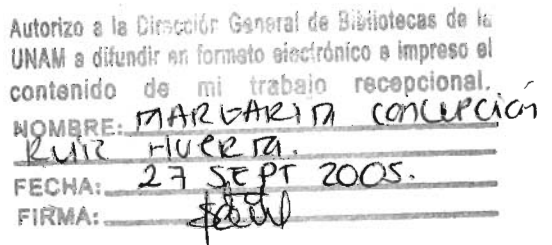 Autorizo a la Dirección General de Bibliotecas de la
UNAM a difundir en formato electrónico e impreso el
contenido de mi trabajo recepcional.
NOMBRE: MARGARITA CONCEPCIÓN
RUIZ HUERTA.
FECHA: 27 SEPT 2005.
FIRMA: